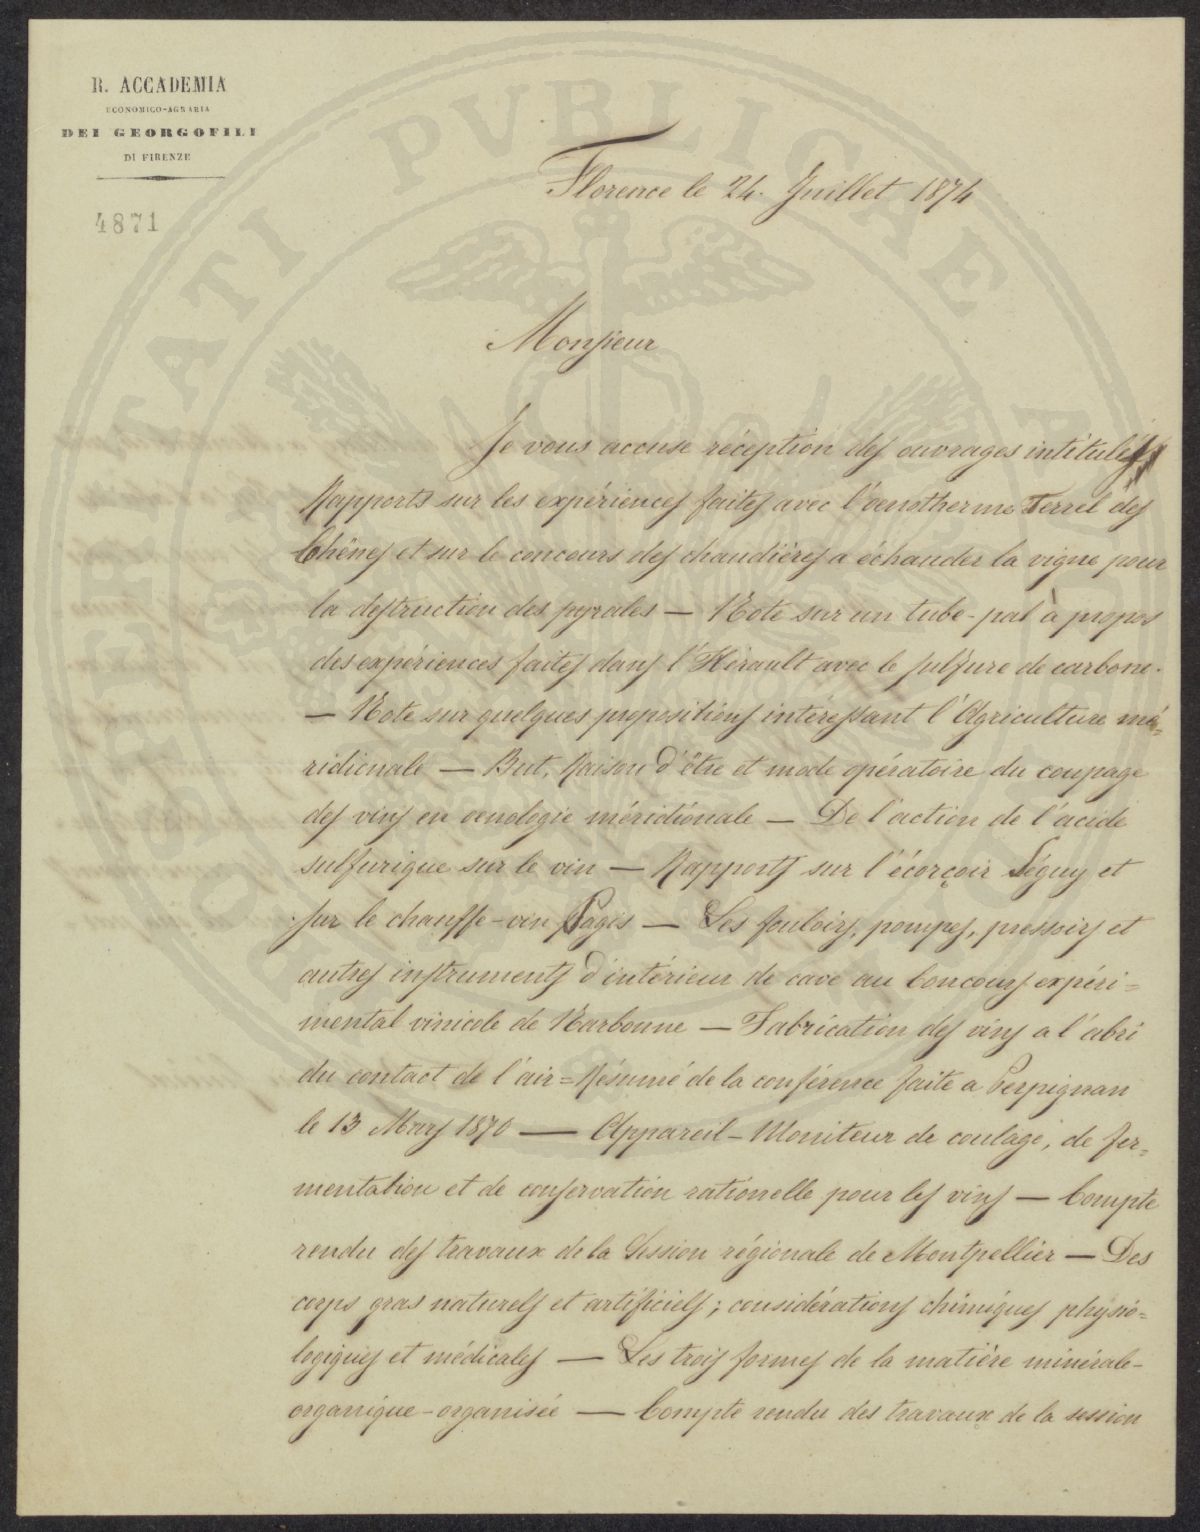 R. ACCADEMIA
ECONOMICO-AGRARIA
DEI GEORGOFILI
DI FIRENZE
4871
PROSPERITATI PVBLICAE AVGENDAE
Florence le 24. Juillet 1874
Monsieur
Je vous accuse réception des ouvrages intitulés
Rapports sur les expériences faites avec l'oenotherme Terrel des
Chênes et sur le concours des chaudières a échauder la vigne pour
la destruction des pyrales — Note sur un tube-pal à propos
des expériences faites dans l'Hérault avec le sulfure de carbone.
— Note sur quelques propositions intéressant l'Agriculture mé=
ridionale — But, Raison d'être et mode opératoire du coupage
des vins en oenologie méridionale — De l'action de l'acide
sulfurique sur le vin — Rapports sur l'écorçoir Séguy et
sur le chauffe-vin Pagés — Les fouloirs, pompes, pressoirs et
autres instruments d'intérieur de cave au Concours expéri=
mental vinicole de Narbonne — Fabrication des vins a l'abri
du contact de l'air = Résumé de la conférence faite a Perpignan
le 13 Mars 1870 — Appareil-Moniteur de coulage, de fer=
mentation et de conservation rationelle pour les vins — Compte
rendu des travaux de la Session régionale de Montpellier — Des
corps gras naturels et artificiels; considérations chimiques physio=
logiques et médicales — Les trois formes de la matière minérale-
organique-organisée — Compte rendu des travaux de la session